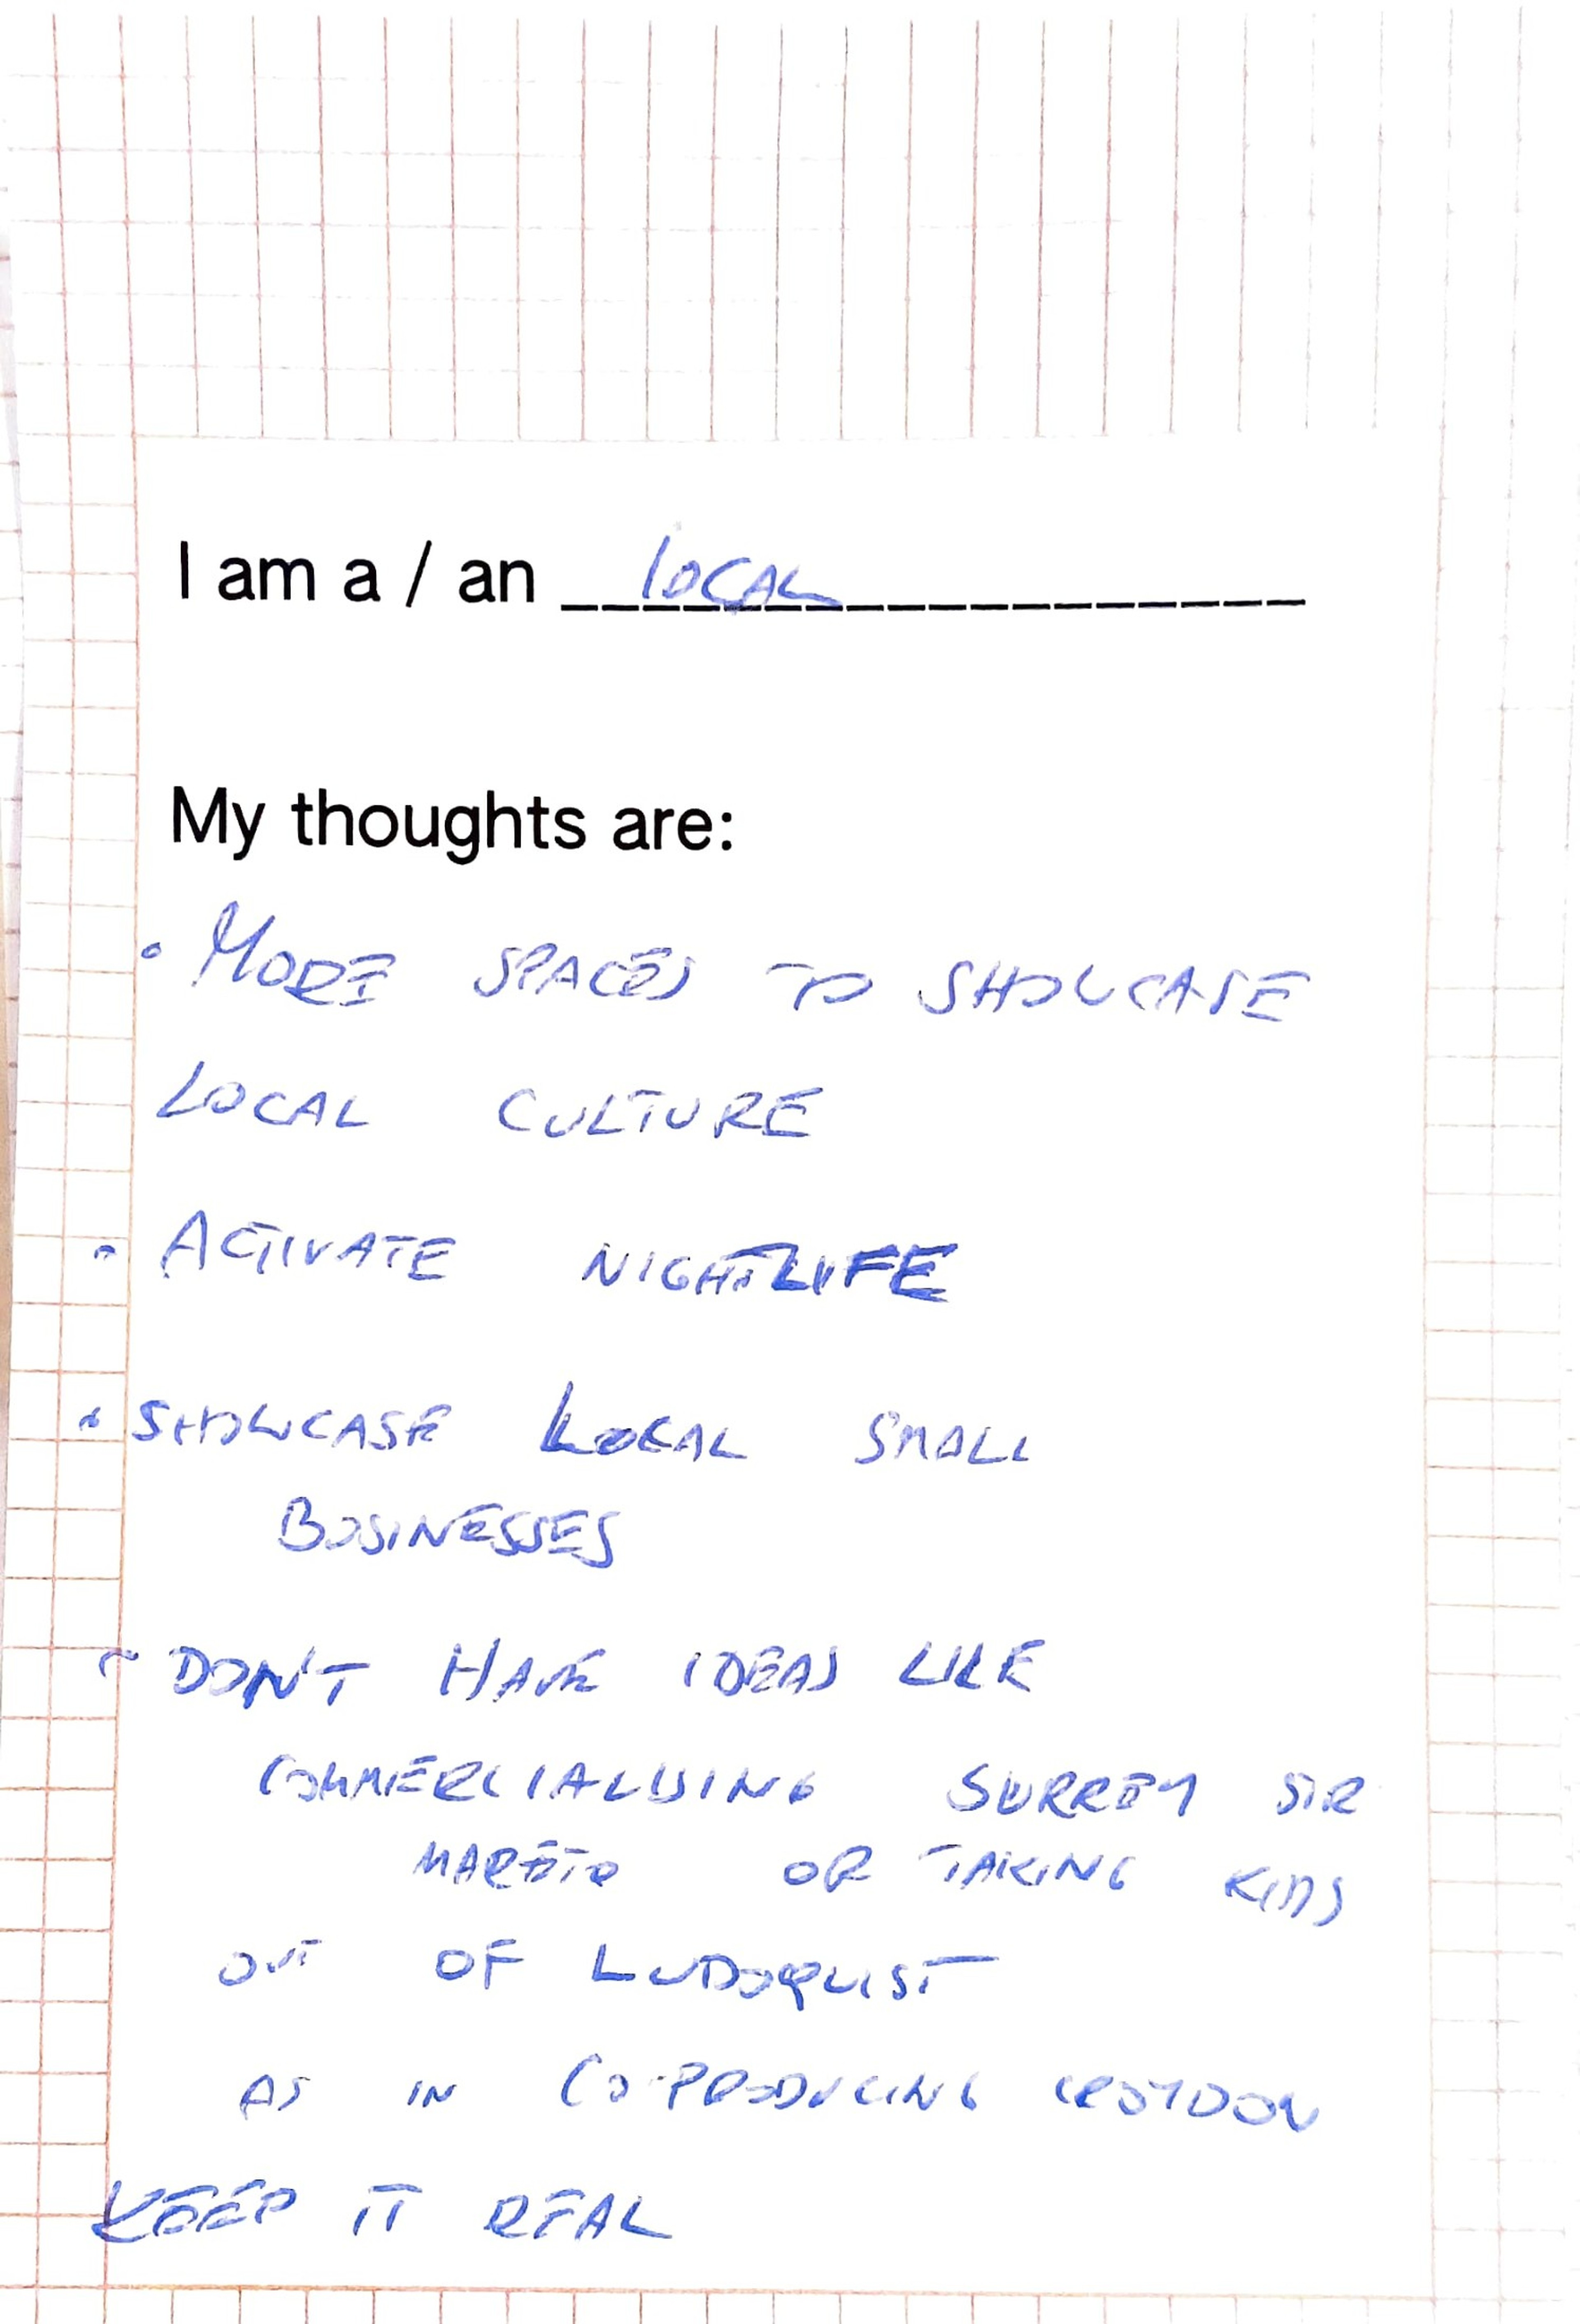 I am a / an LOCAL
My thoughts are:
• MORE SPACES TO SHOWCASE
LOCAL CULTURE
• ACTIVATE NIGHTLIFE
• SHOWCASE LOCAL SMALL
BUSINESSES
- DON'T HAVE IDEAS LIKE
COMMERCIALISING SURREY STR
OR TAKING KIDS
OUT OF LUDOQUIST
AS IN CO-PRODUCING CROYDON
KEEP IT REAL